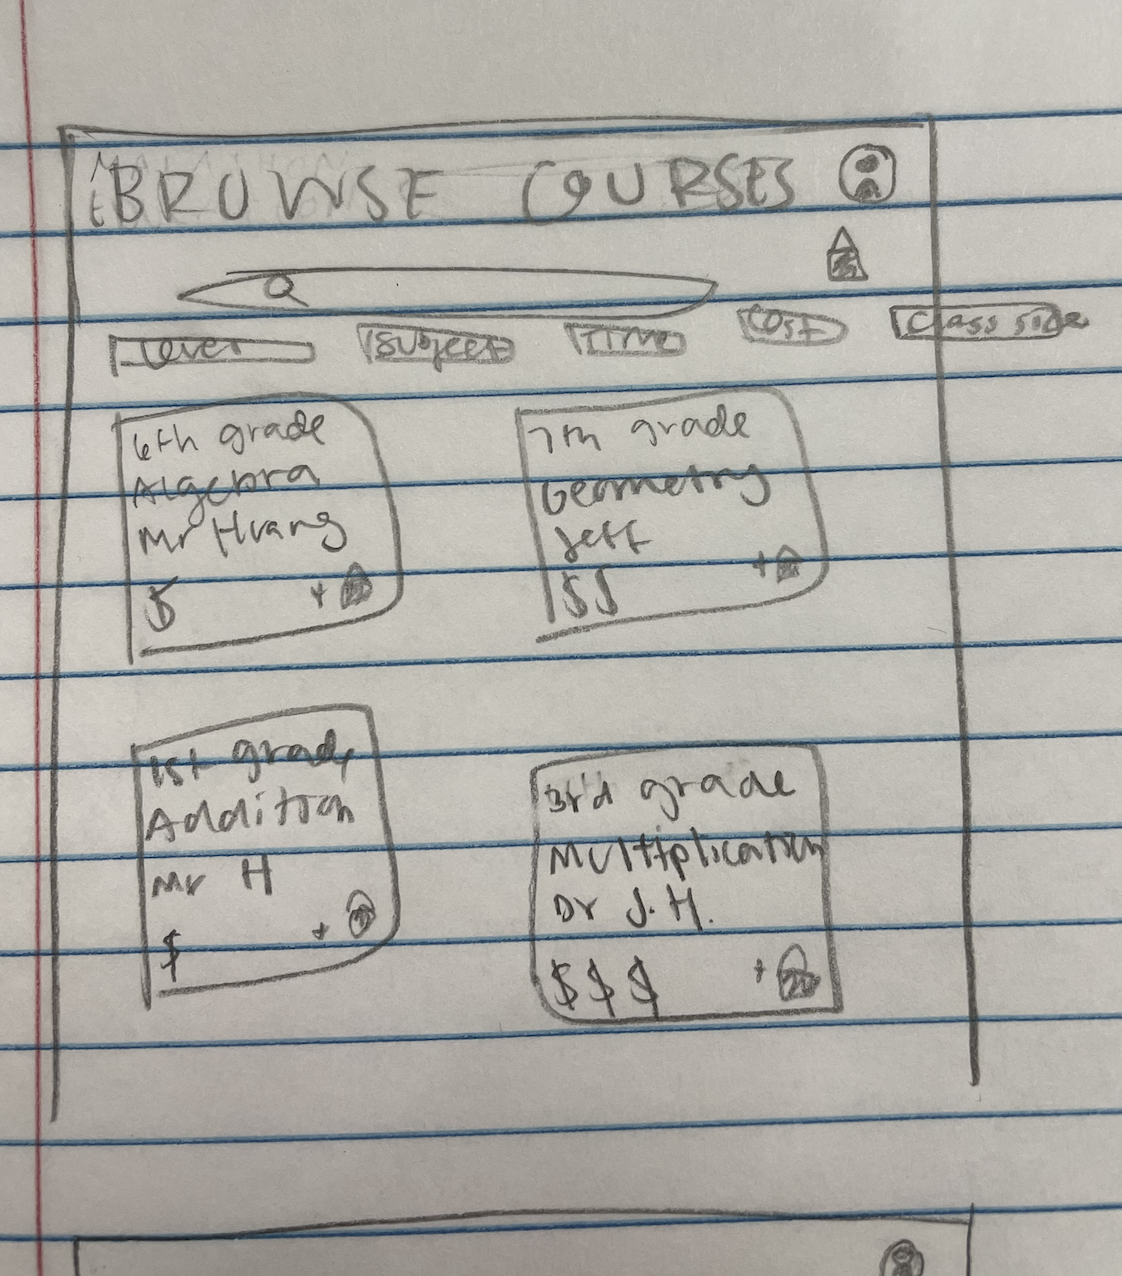 BROWSE COURSES
Level Subject Time Cost Class size
6th grade
Algebra
Mr Hwang
$ +
7th grade
Geometry
Jeff
$$ +
1st grade
Addition
Mr H
$ +
3rd grade
Multiplication
Dr J.H.
$$$ +